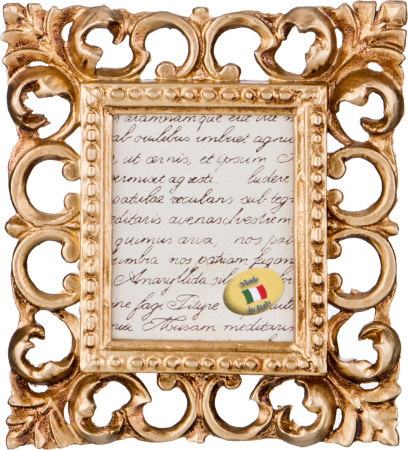 aramnamque erit ille m
ab ovilibus imbuet agnu
ut cernis, et ipsum
ermisit agresti. ludere
patulae recubans sub teg
ditaris avena silvestrem
quimus arva, nos pat
umbra nos patriam fugam
Amaryllida sil
ne fagi Tityre
Musam meditaris
Made
in Italy